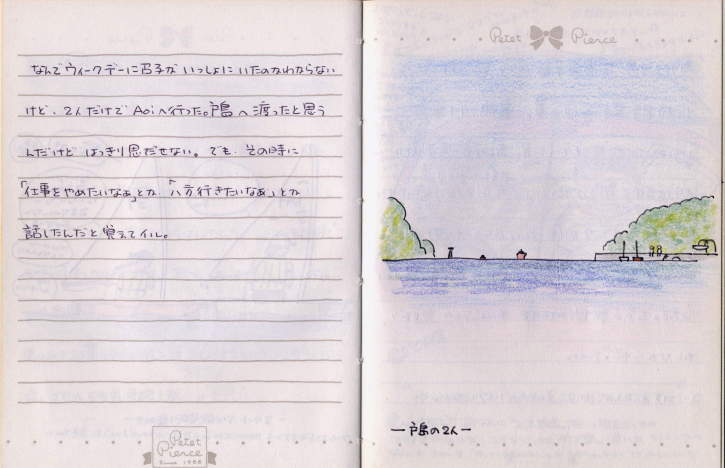 Petet Pierce
なんでウィークデーに子がいっしょにいたのかわからない
けど、2人だけでAoiへ行った。戸島へ渡ったと思う
んだけどはっきり思だせない。でも、その時に
「仕事をやめたいなぁ」とか「八方行きたいなぁ」とか
話したんだと覚えてイル。
Petet
Pierce
Since 1988
ー戸島の2人ー